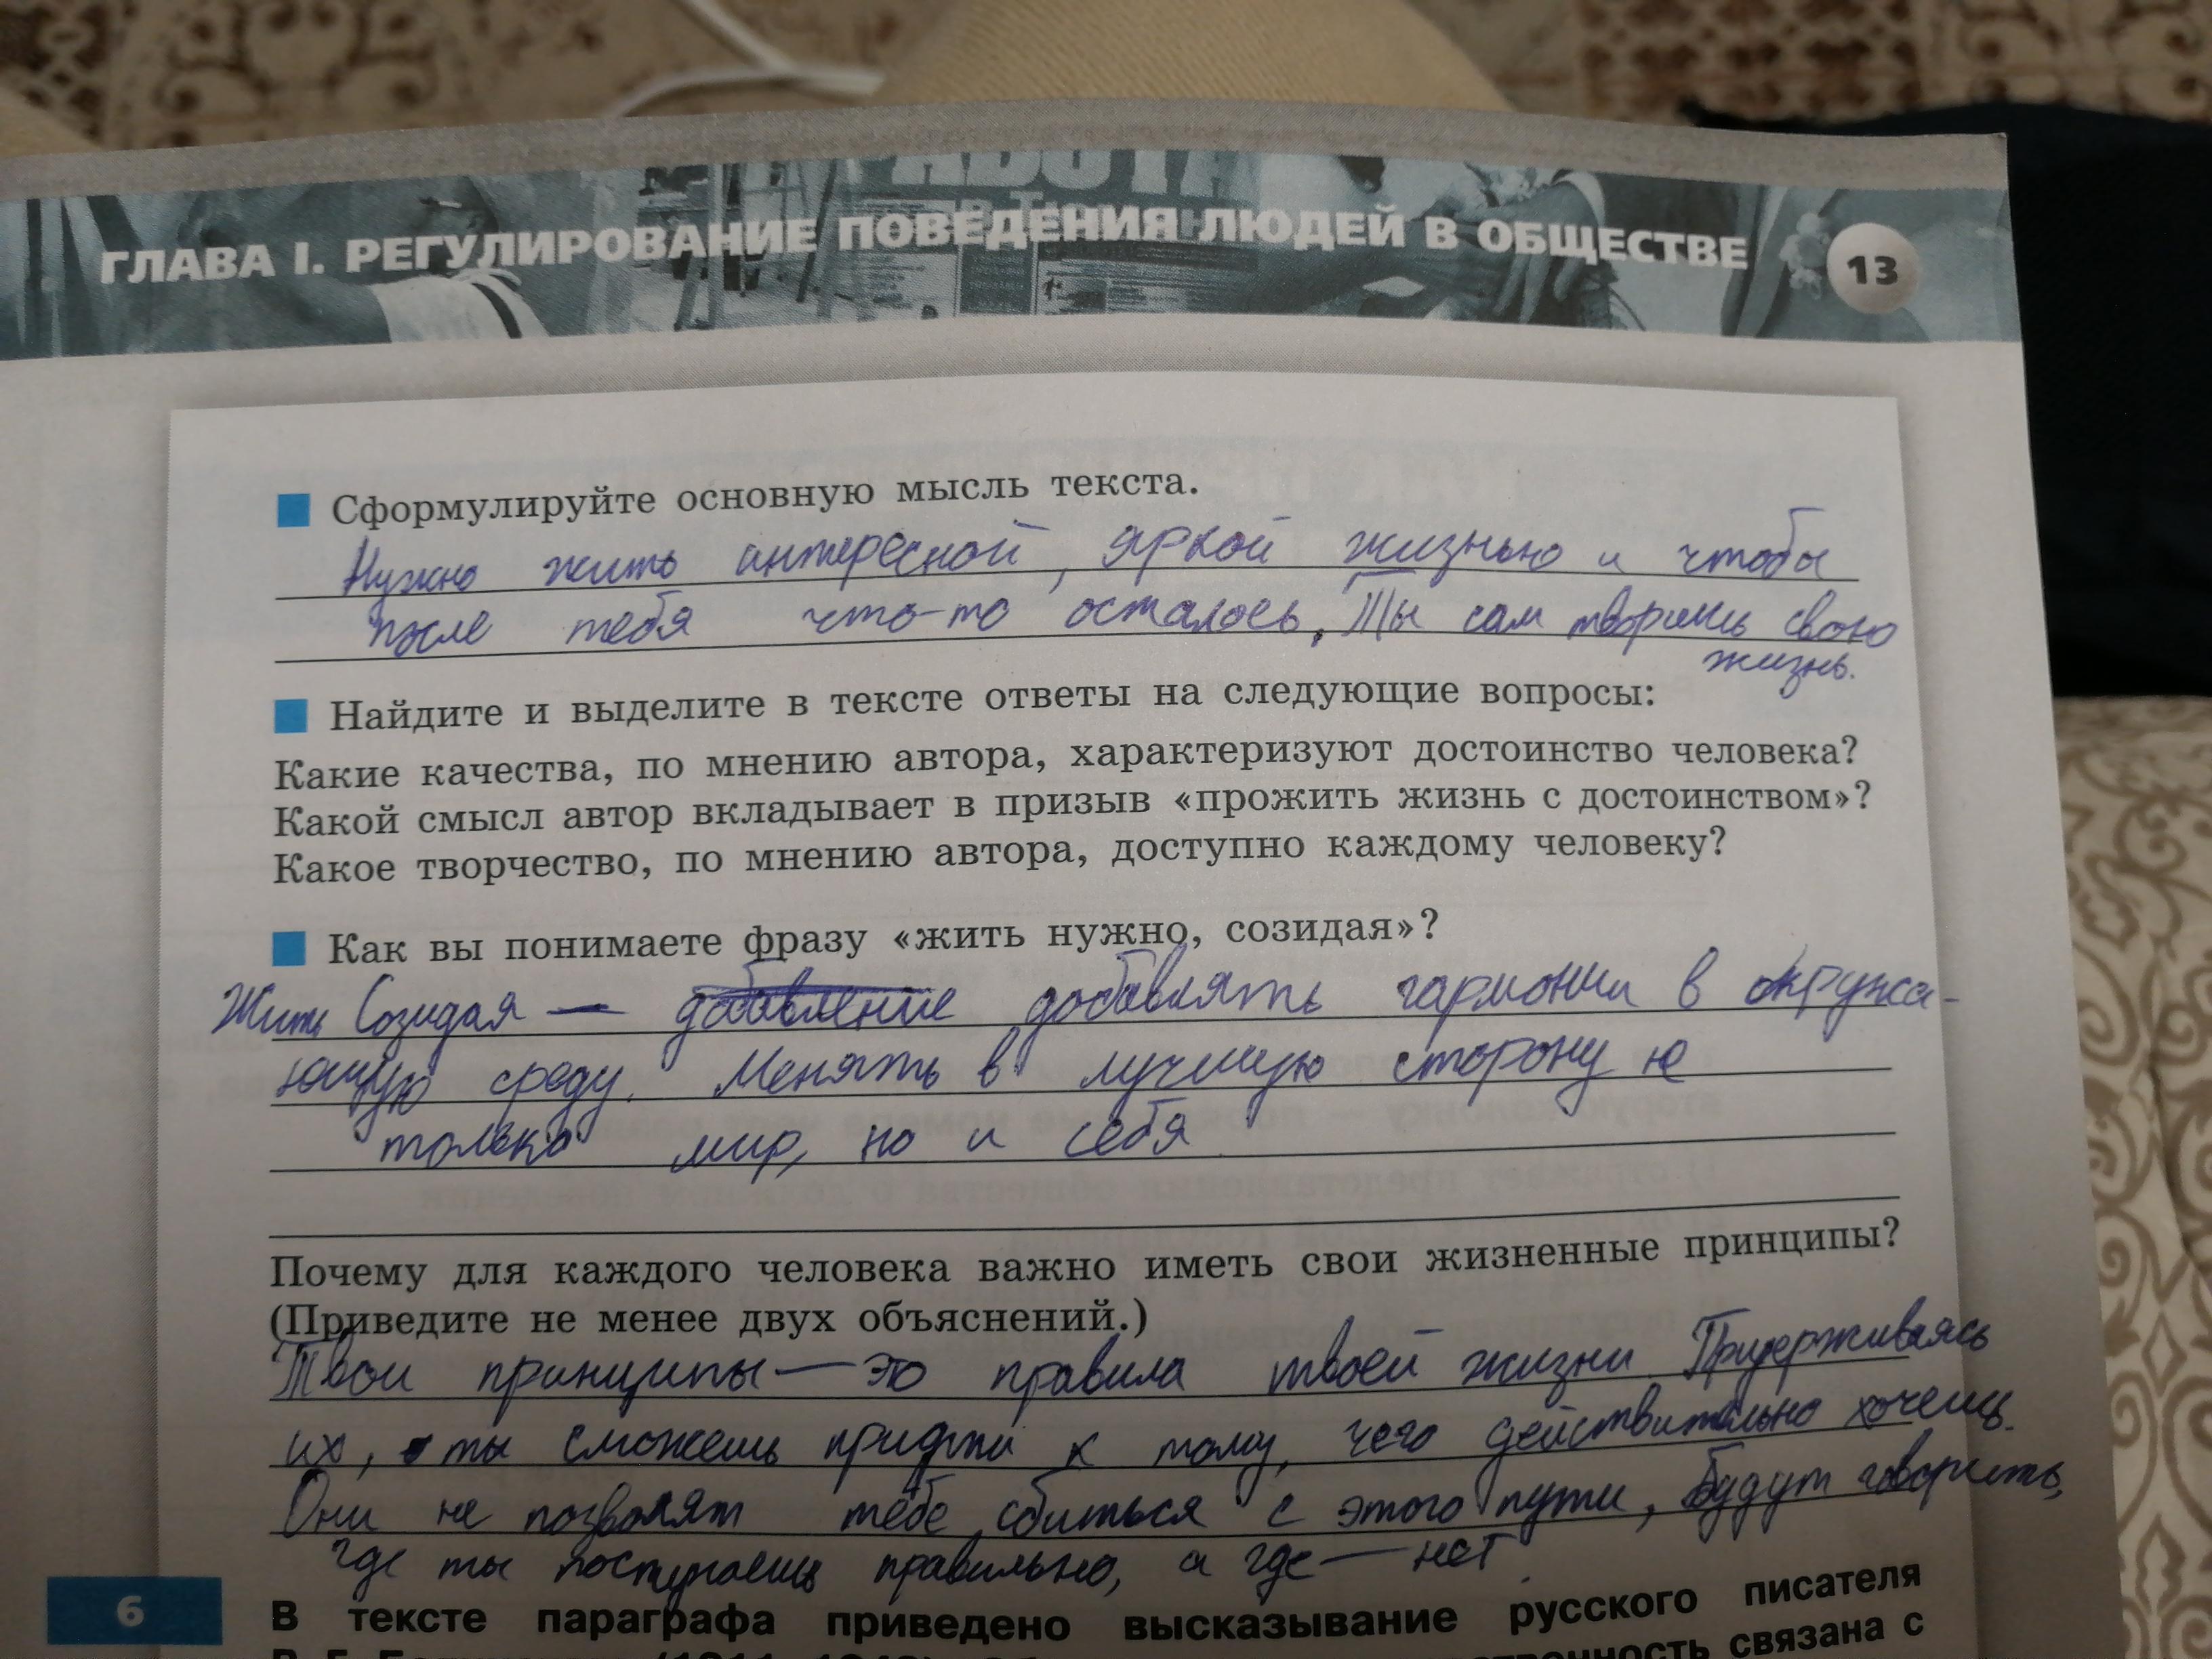 РАБОТА
ГЛАВА I. РЕГУЛИРОВАНИЕ ПОВЕДЕНИЯ ЛЮДЕЙ В ОБЩЕСТВЕ
13
Сформулируйте основную мысль текста.
Нужно жить интересной, яркой жизнью и чтобы
после тебя что-то осталось, Ты сам творишь свою
жизнь.
Найдите и выделите в тексте ответы на следующие вопросы:
Какие качества, по мнению автора, характеризуют достоинство человека?
Какой смысл автор вкладывает в призыв «прожить жизнь с достоинством»?
Какое творчество, по мнению автора, доступно каждому человеку?
Как вы понимаете фразу «жить нужно, созидая»?
Жить Созидая — добавление добавлять гармонии в окружа-
ющую среду. Менять в лучшую сторону не
только мир, но и себя
Почему для каждого человека важно иметь свои жизненные принципы?
(Приведите не менее двух объяснений.)
Твои принципы — это правила твоей жизни. Придерживаясь
их, ты сможешь придти к тому, чего действительно хочешь.
Они не позволят тебе сбиться с этого пути, будут говорить,
где ты поступаешь правильно, а где — нет.
6
В тексте параграфа приведено высказывание русского писателя
связана с